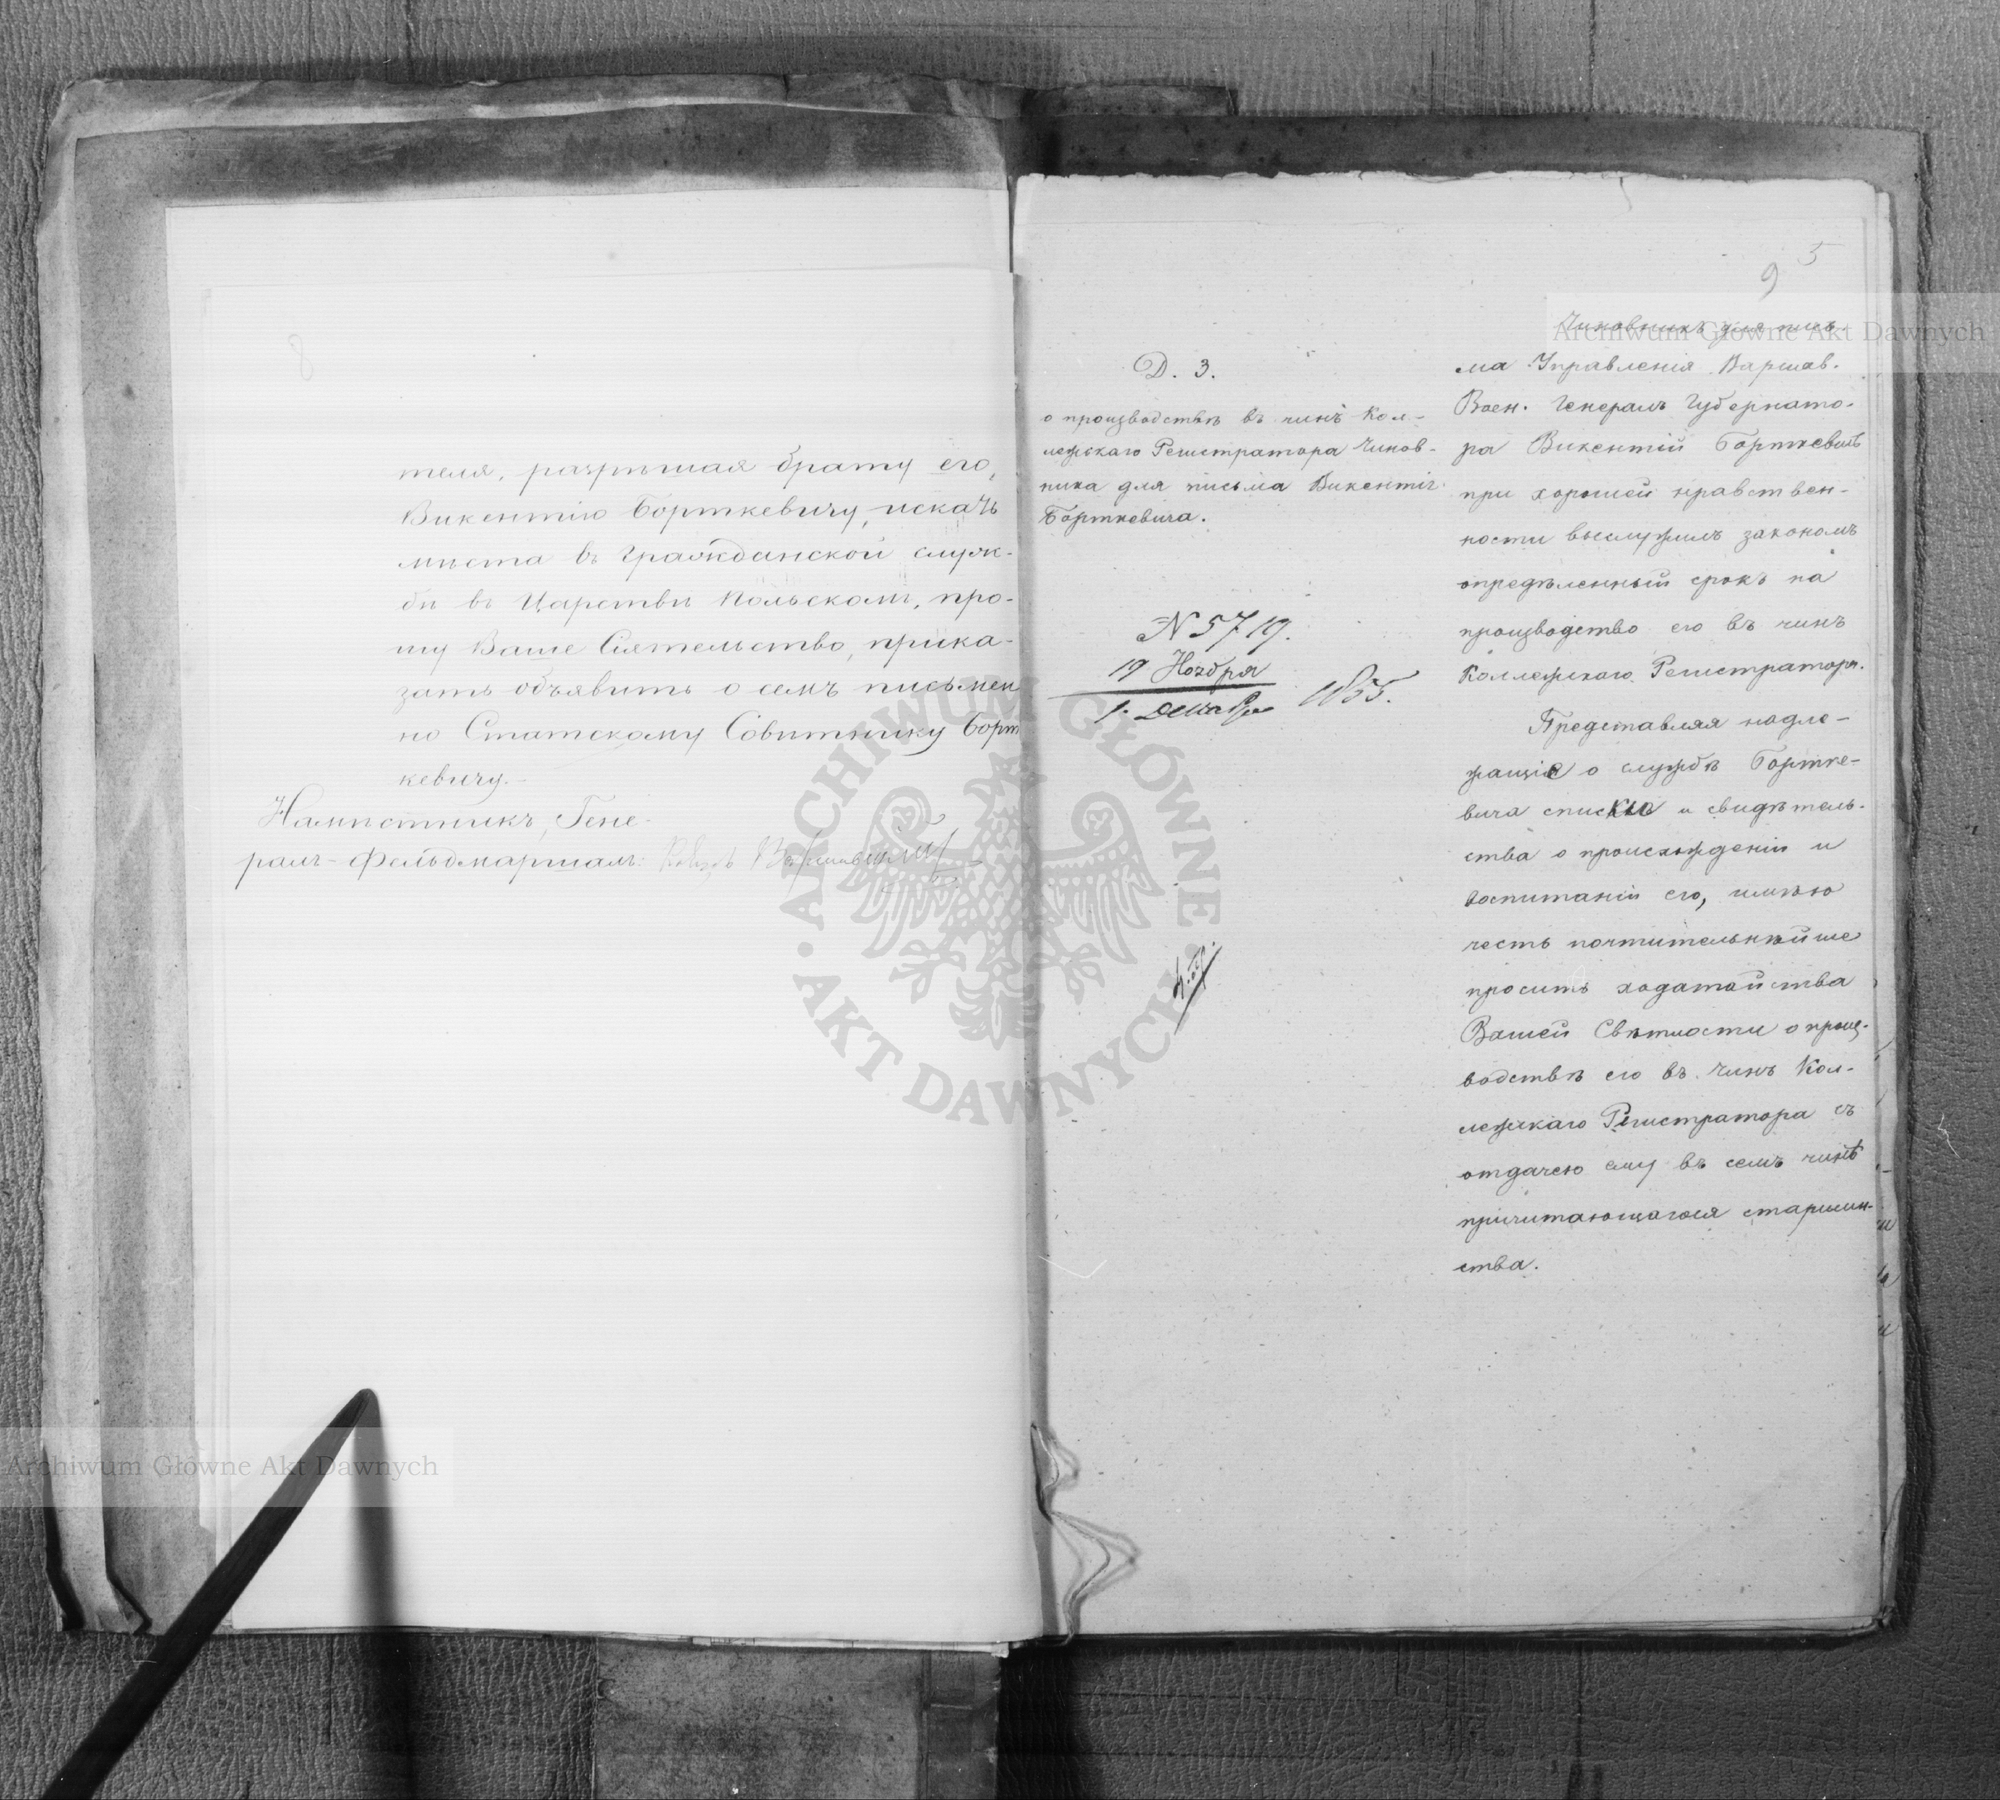 8
теля, разрѣшая брату его,
Викентію Борткевичу, искать
мѣста въ гражданской служ-
бѣ въ Царствѣ Польскомъ, про-
шу Ваше Сіятельство, прика-
зать объявить о семъ письмен
но Статскому Совѣтнику Борт
кевичу.-
Намѣстникъ, Гене-
ралъ-Фельдмаршалъ: Князь Варшавскій
9 5
Д. 3.
о производствѣ въ чинъ Кол-
лежскаго Регистратора Чинов-
ника для письма Викентія
Борткевича.
N 5719.
19 Ноября
1. Декабря 1855.
Чиновникъ для пись-
ма Управленія Варшав.
Воен. Генералъ Губернато-
ра Викентій Борткевичъ
при хорошей нравствен-
ности выслужилъ закономъ
опредѣленный срокъ на
производство его въ чинъ
Коллежскаго Регистратора.
Представляя надле-
жащіе о службѣ Бортке-
вича списки и свидѣтель-
ства о происхожденіи и
воспитаніи его, имѣю
честь почтительнѣйше
просить ходатайства
Вашей Свѣтлости о произ-
водствѣ его въ Чинъ Кол-
лежскаго Регистратора съ
отдачею ему въ семъ чинѣ
причитающагося старшин-
ства.
ARCHIWUM GŁÓWNE AKT DAWNYCH
Archiwum Główne Akt Dawnych
Archiwum Główne Akt Dawnych